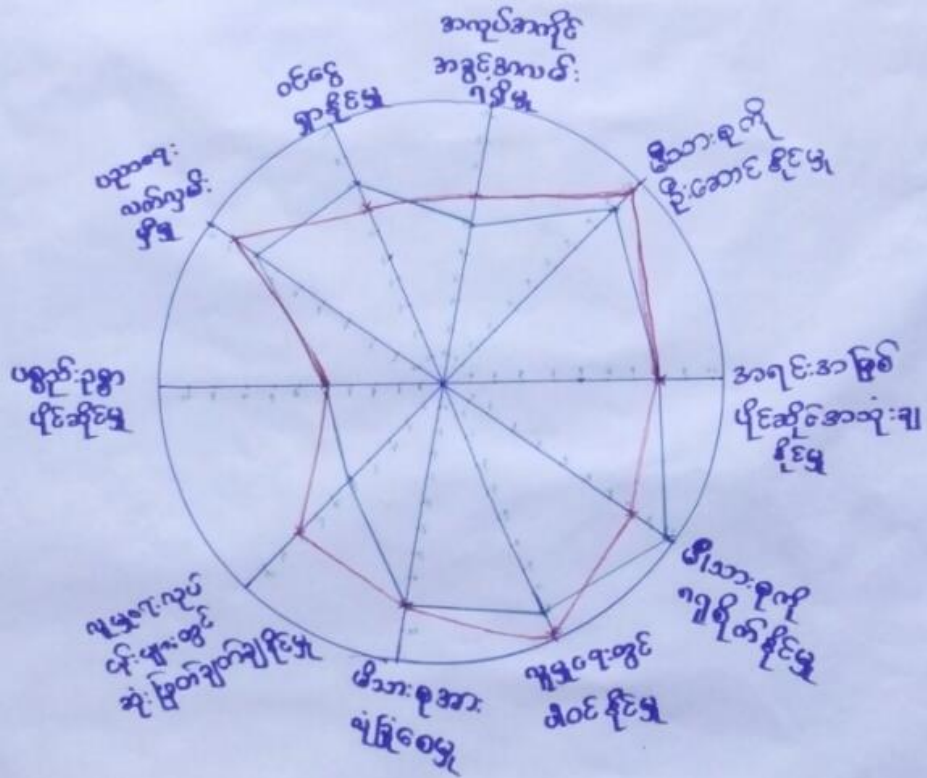 အလုပ်အကိုင်
အခွင့်အလမ်း
ရရှိမှု
မိသားစုကို
ဦးဆောင်နိုင်မှု
အရင်းအမြစ်
ပိုင်ဆိုင်အသုံးချ
နိုင်မှု
မိသားစုကို
ရှိုက်နိုင်မှု
လူမှုရေးတွင်
ပါဝင်နိုင်မှု
မိသားစုအား
လုံခြုံစေမှု
လူမှုရေးလုပ်
ငန်းများတွင်
ဆုံးဖြတ်ချက်ချနိုင်မှု
ပစ္စည်းဥစ္စာ
ပိုင်ဆိုင်မှု
ပညာရေး
လတ်လှမ်း
မှီမှု
ဝင်ငွေ
ရှာနိုင်မှု